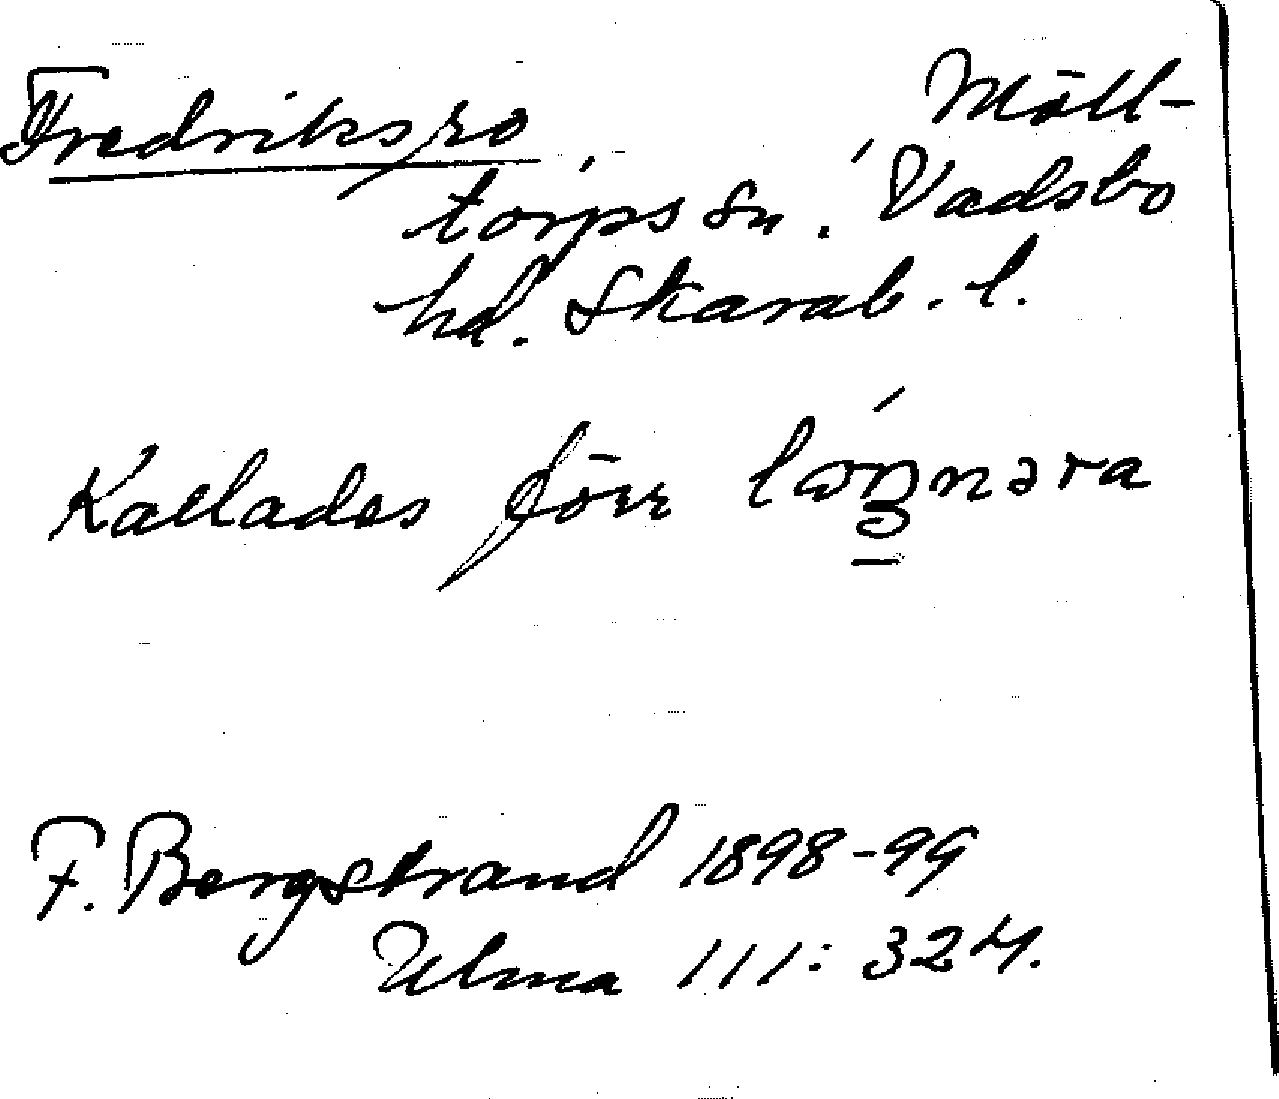 Fredriksro, Möll-
torps sn. Vadsbo
hd. Skarab. l.
Kallades förr
F. Bergstrand 1898-99
Ulma 111: 324.